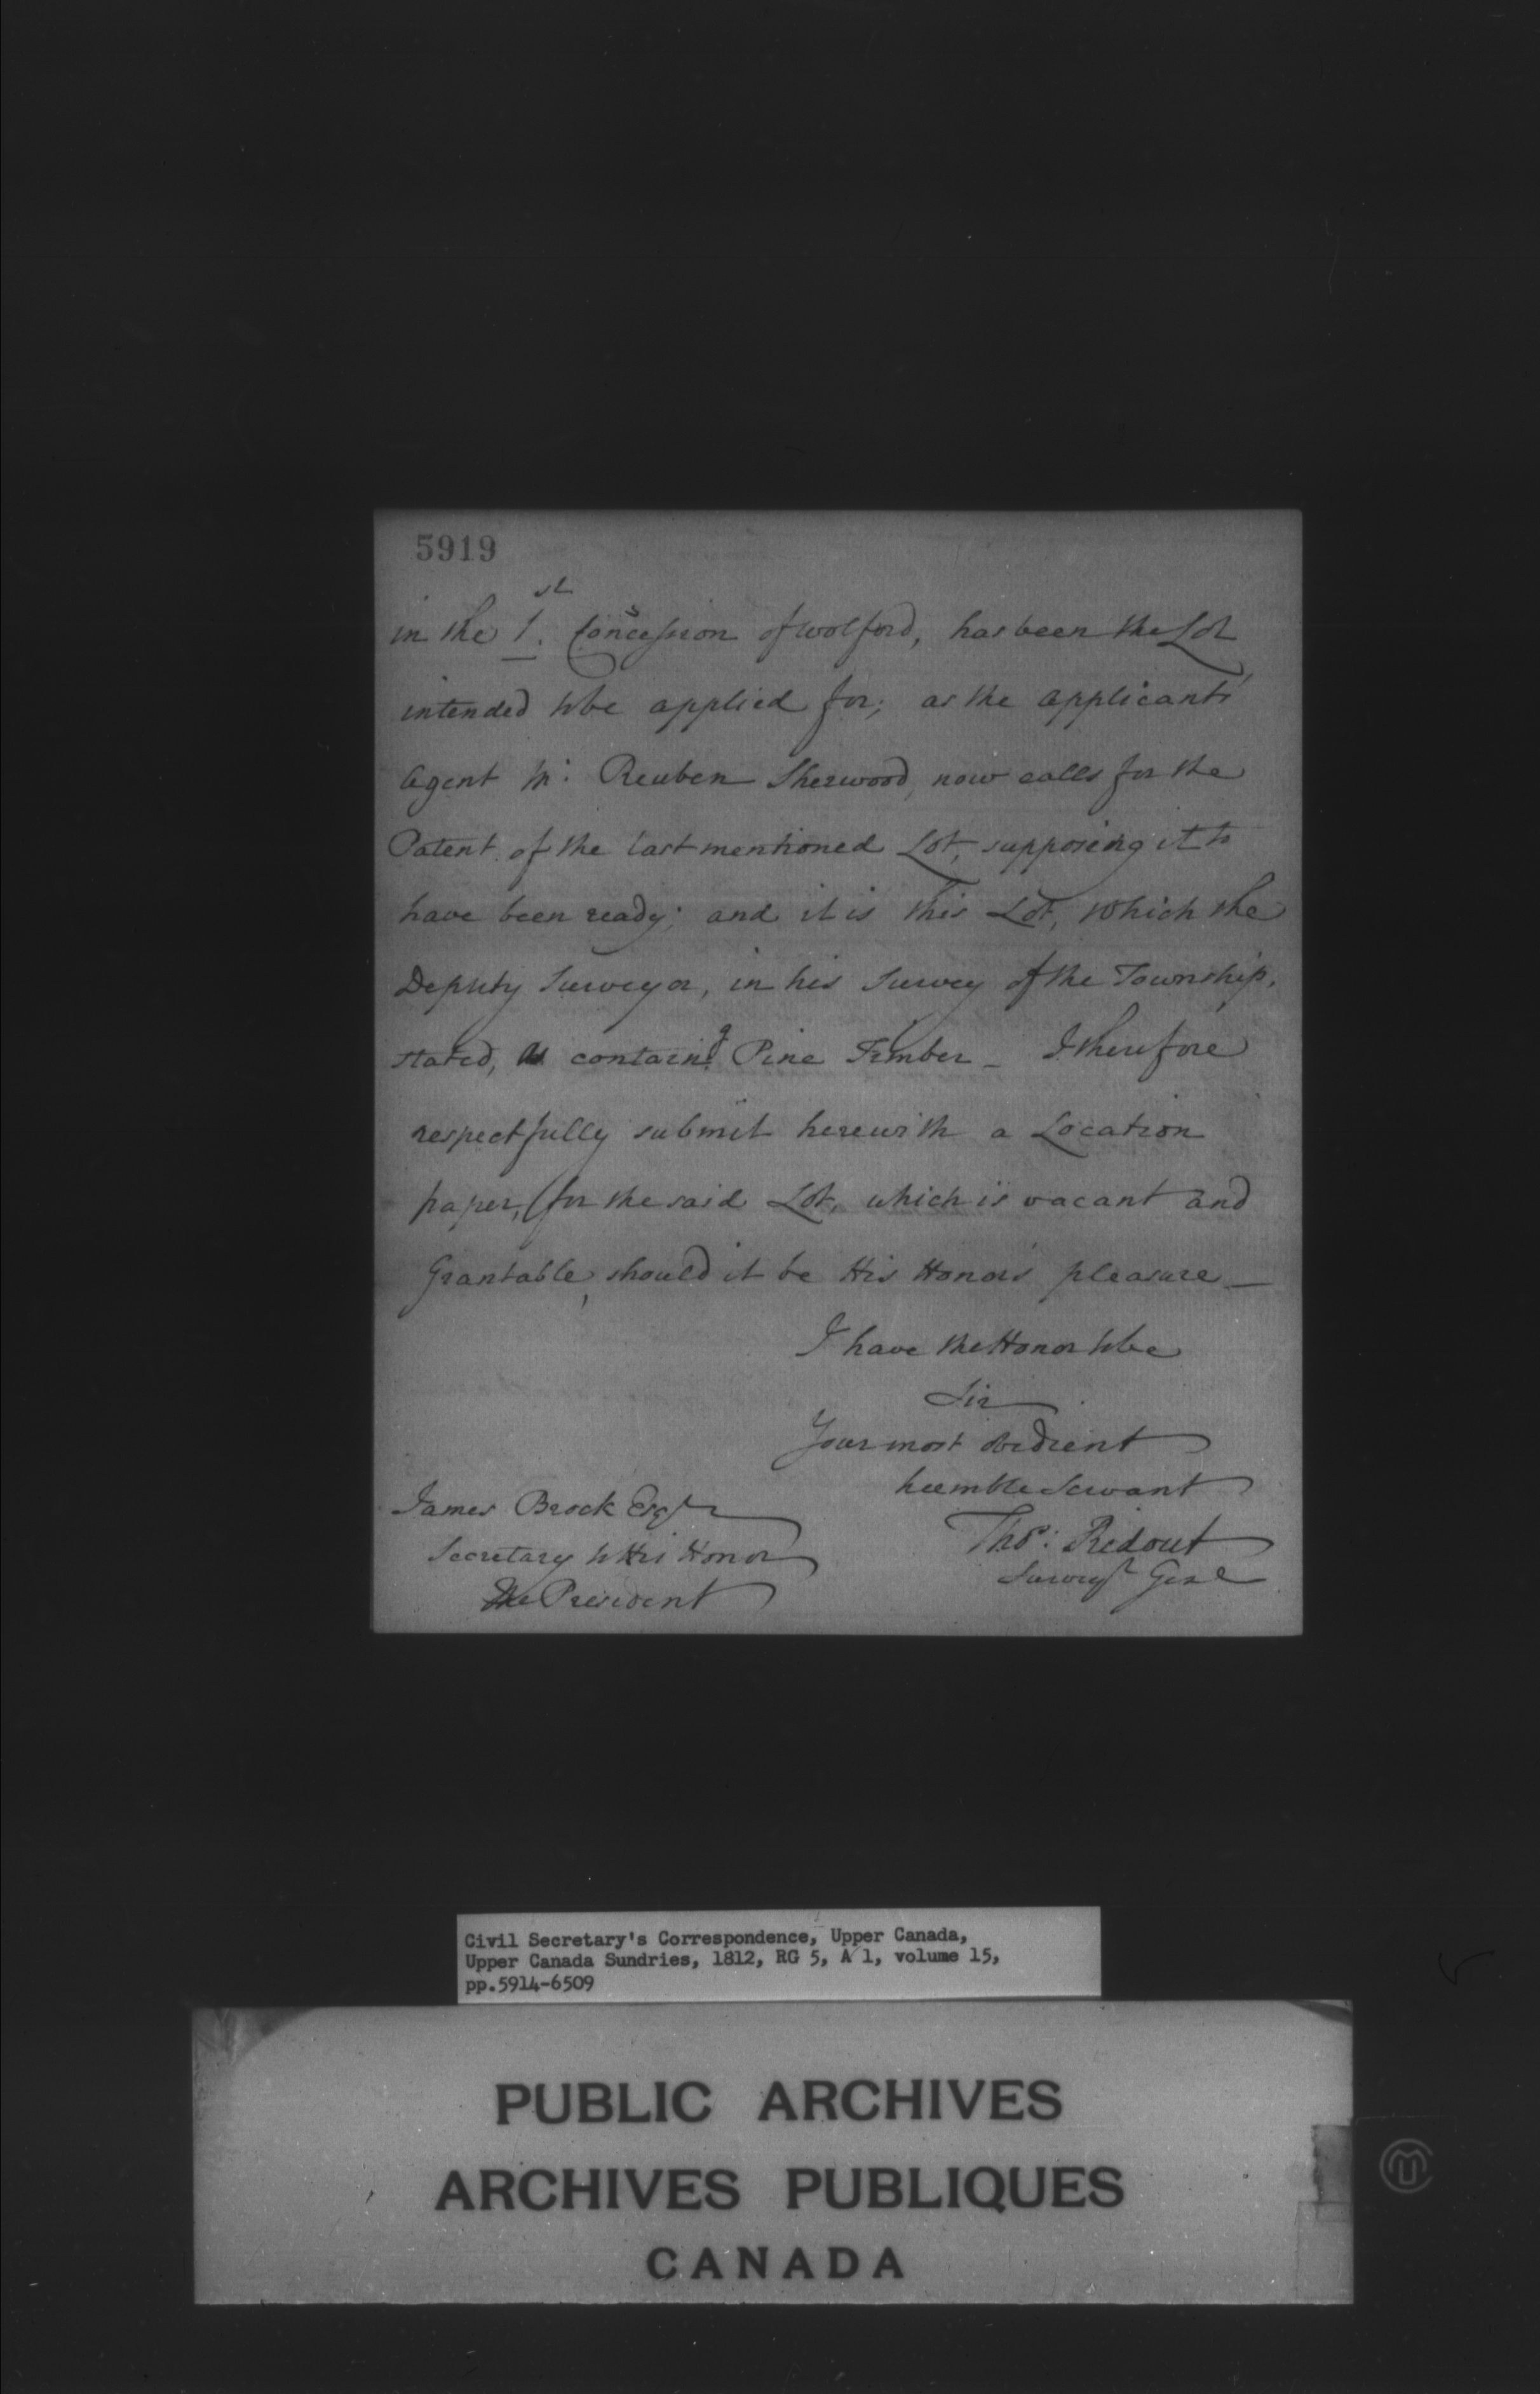 5919
in the 1st. Concession of Wolford, has been the Lot
intended to be applied for; as the applicants'
Agent Mr. Reuben Sherwood, now calls for the
Patent of the last mentioned Lot, supposing it to
have been ready; and it is this Lot, which the
Deputy Surveyor, in his Survey of the Township,
stated, as containg. Pine Timber_ I therefore
respectfully submit herewith a Location
paper, (for the said Lot, which is vacant and
Grantable, should it be His Honors pleasure_
I have the Honor to be
Sir
Your most obedient
humble Servant
James Brock Esqr
Thos: Ridout
Secretary to His Honor
Surveyr Genl
The President
Civil Secretary's Correspondence, Upper Canada,
Upper Canada Sundries, 1812, RG 5, A 1, volume 15,
pp.5914-6509
PUBLIC ARCHIVES
ARCHIVES PUBLIQUES
CANADA